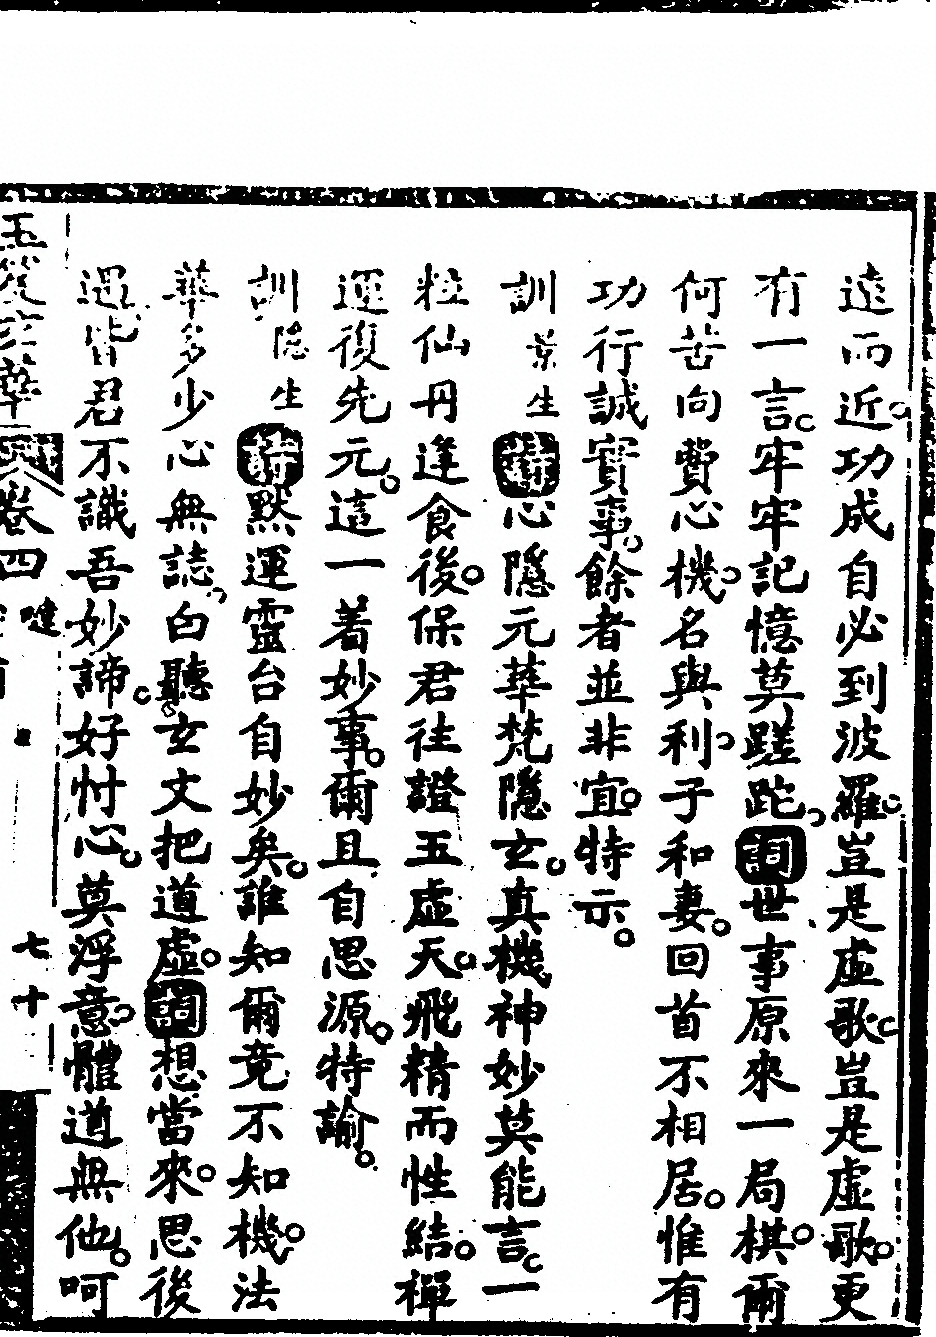 遠而近。功成自必到波羅。豈是虛歌。豈是虛歌。更
有一言。牢牢記憶莫蹉跎。詞世事原來一局棋。爾
何苦向費心機。名與利。子和妻。回首不相居。惟有
功行誠實事。餘者並非宜。特示。
訓景生詩心隱元華梵隱玄。真機神妙莫能言。一
粒仙丹逢食後。保君往證玉虛天。飛精而性結。禪
運復先元。這一着妙事。爾且自思源。特諭。
訓隱生詩默運靈台自妙矣。誰知爾竟不知機。法
華多少心無誌。白聽玄文把道虛。詞想當來。思後
過皆君不識吾妙諦。好忖心。莫浮意。體道無他。呵
卷四 噠 七十